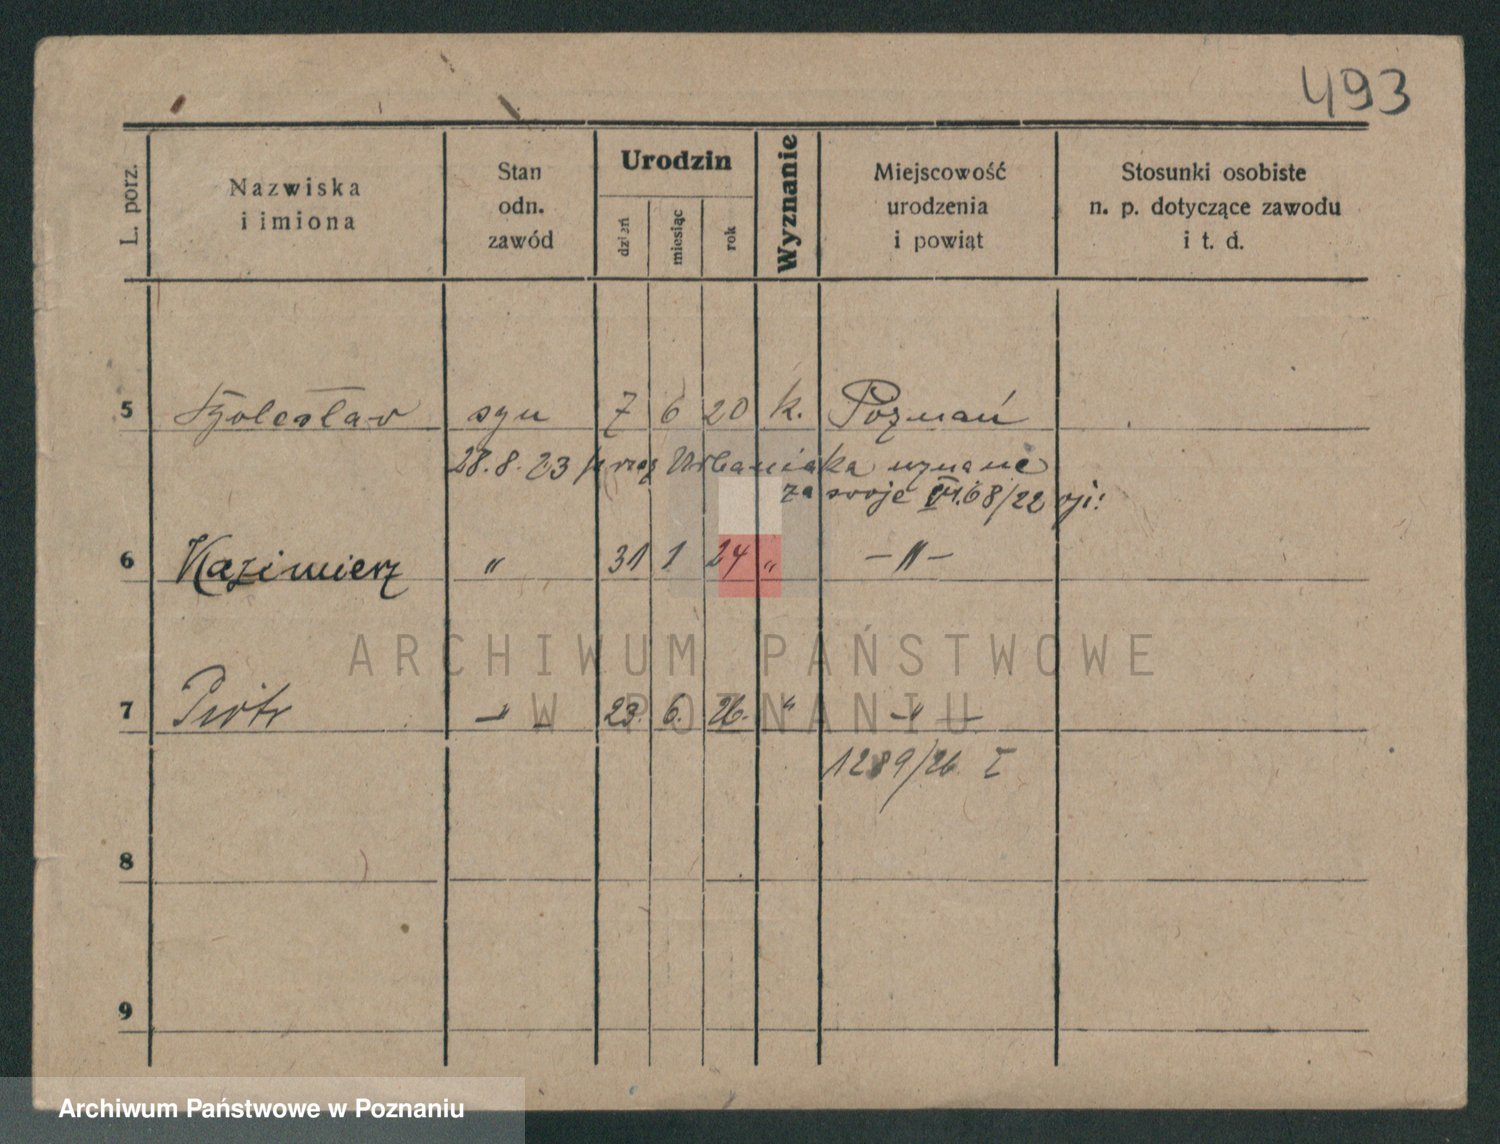 493
L. porz.
Nazwiska
i imiona
Stan
odn.
zawód
Urodzin
dzień
miesiąc
rok
Wyznanie
Miejscowość
urodzenia
i powiąt
Stosunki osobiste
n. p. dotyczące zawodu
i t. d.
5 Bolesław syn 7 6 20 k. Poznań
28.8.23 przez Urbaniaka uznane
za swoje 68/22
6 Kazimierz " 31 1 24 " -"-
7 Piotr -"- 23. 6. 26. " -"-
1289/26 I
8
9
ARCHIWUM PAŃSTWOWE
W POZNANIU
Archiwum Państwowe w Poznaniu